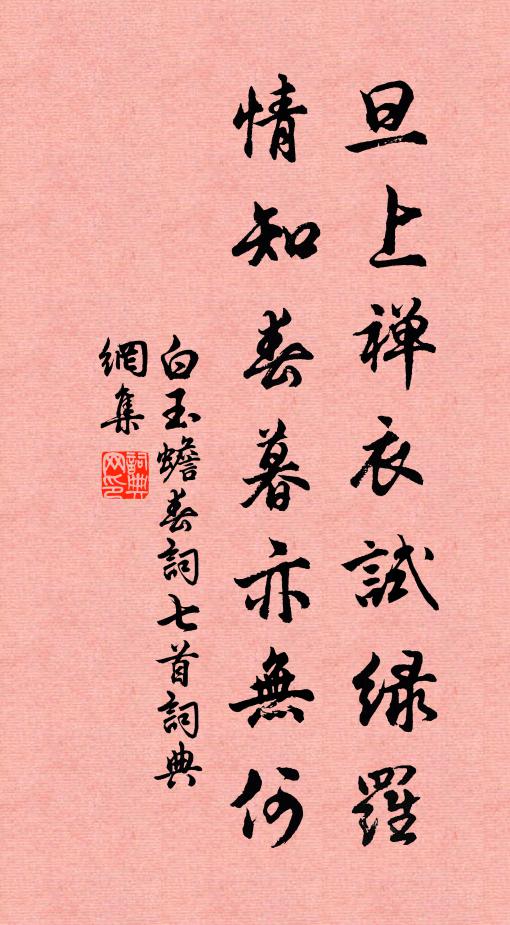 旦上禅衣試緑羅
情知春暮亦無何
白玉蟾春詞七首詞典
網集
詞典
网印